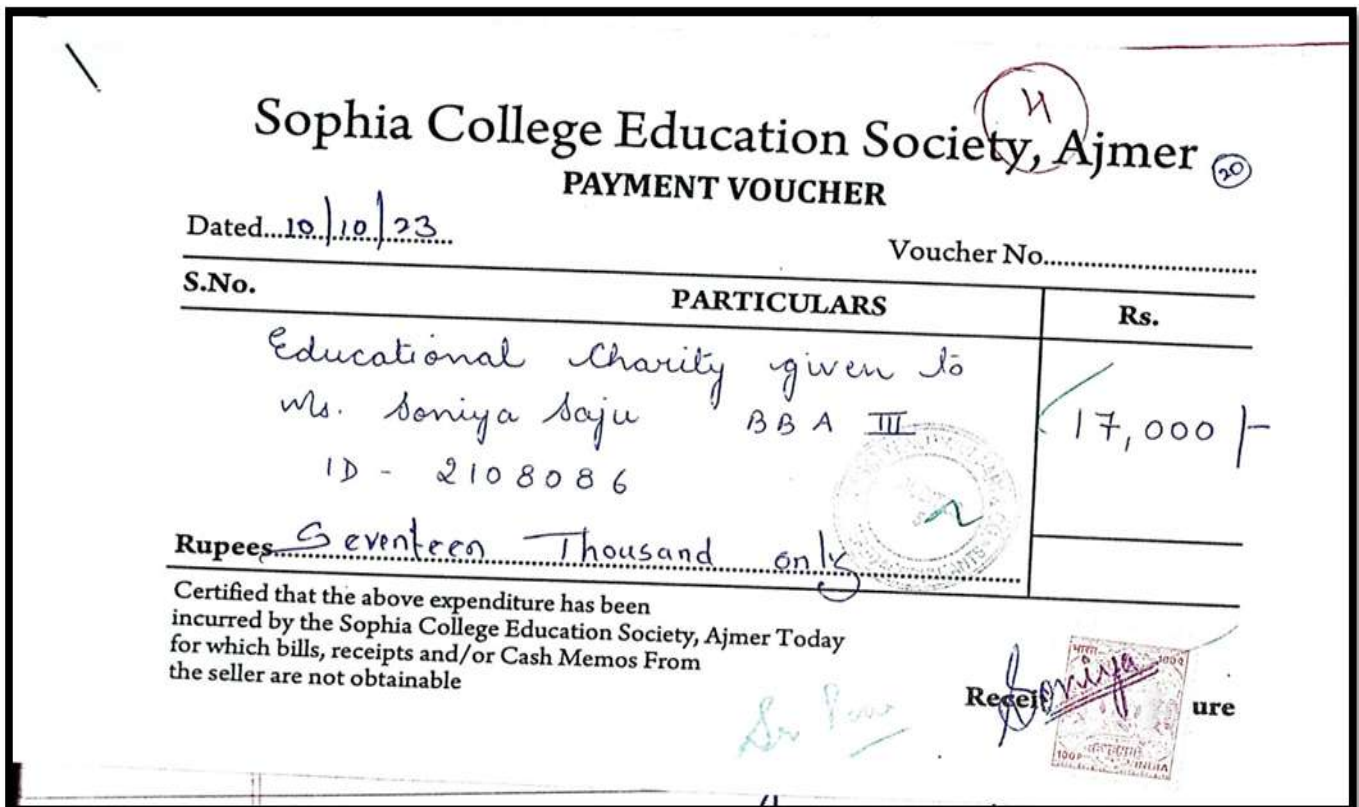 4
Sophia College Education Society, Ajmer 20
PAYMENT VOUCHER
Dated...10/10/23
Voucher No.
S.No. PARTICULARS Rs.
Educational Charity given to
Ms. Soniya Saju BBA III 17,000/-
ID - 2108086
Rupees Seventeen Thousand only
Certified that the above expenditure has been
incurred by the Sophia College Education Society, Ajmer Today
for which bills, receipts and/or Cash Memos From
the seller are not obtainable
Soniya
ure
भारत 100P
INDIA
100P